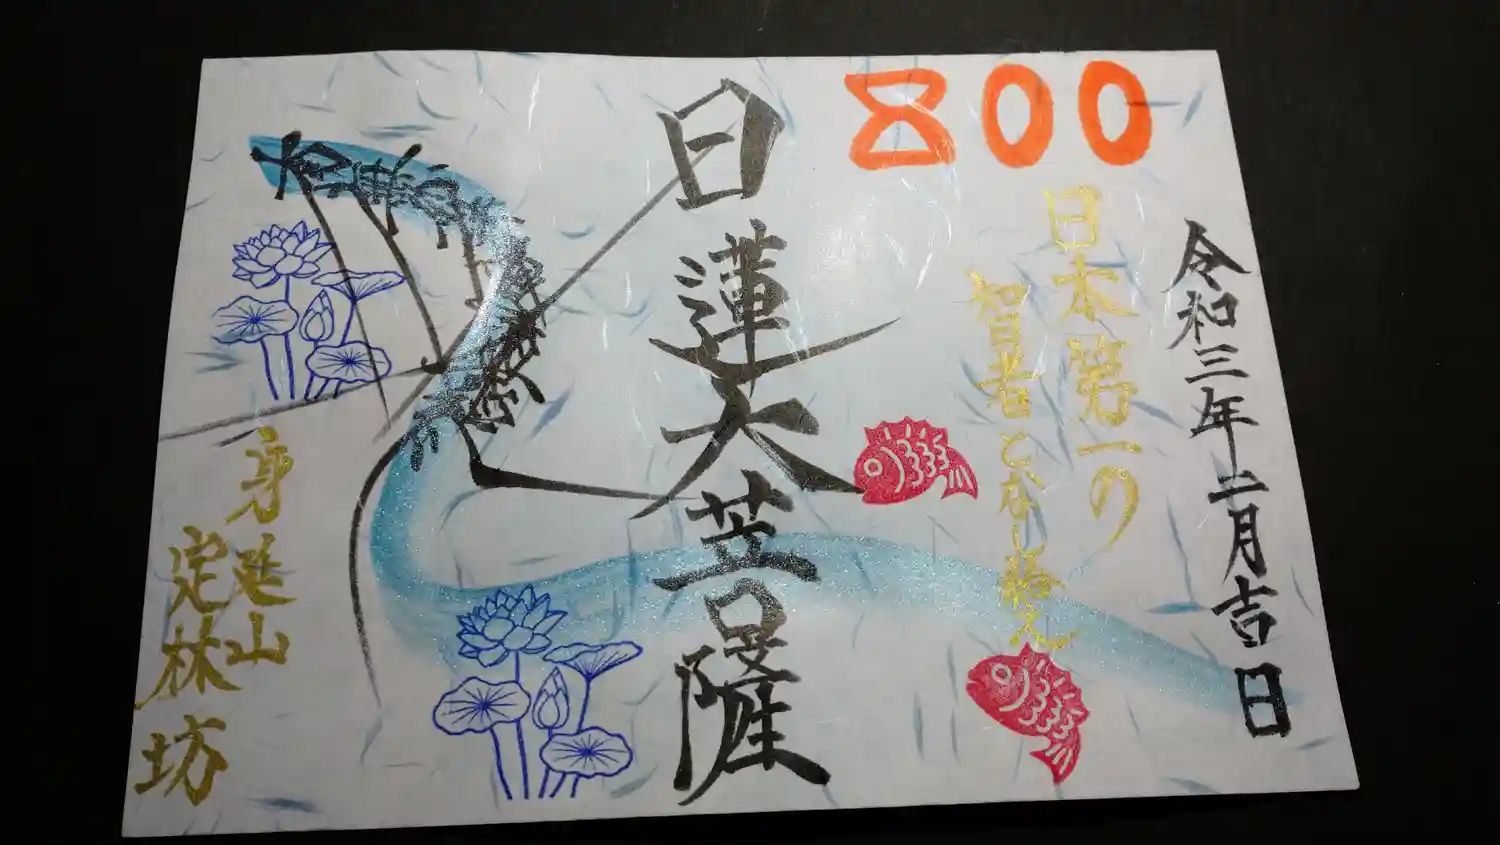 800
令和三年二月吉日
日本第一の
智者となし給え
日蓮大菩薩
身延山
定林坊